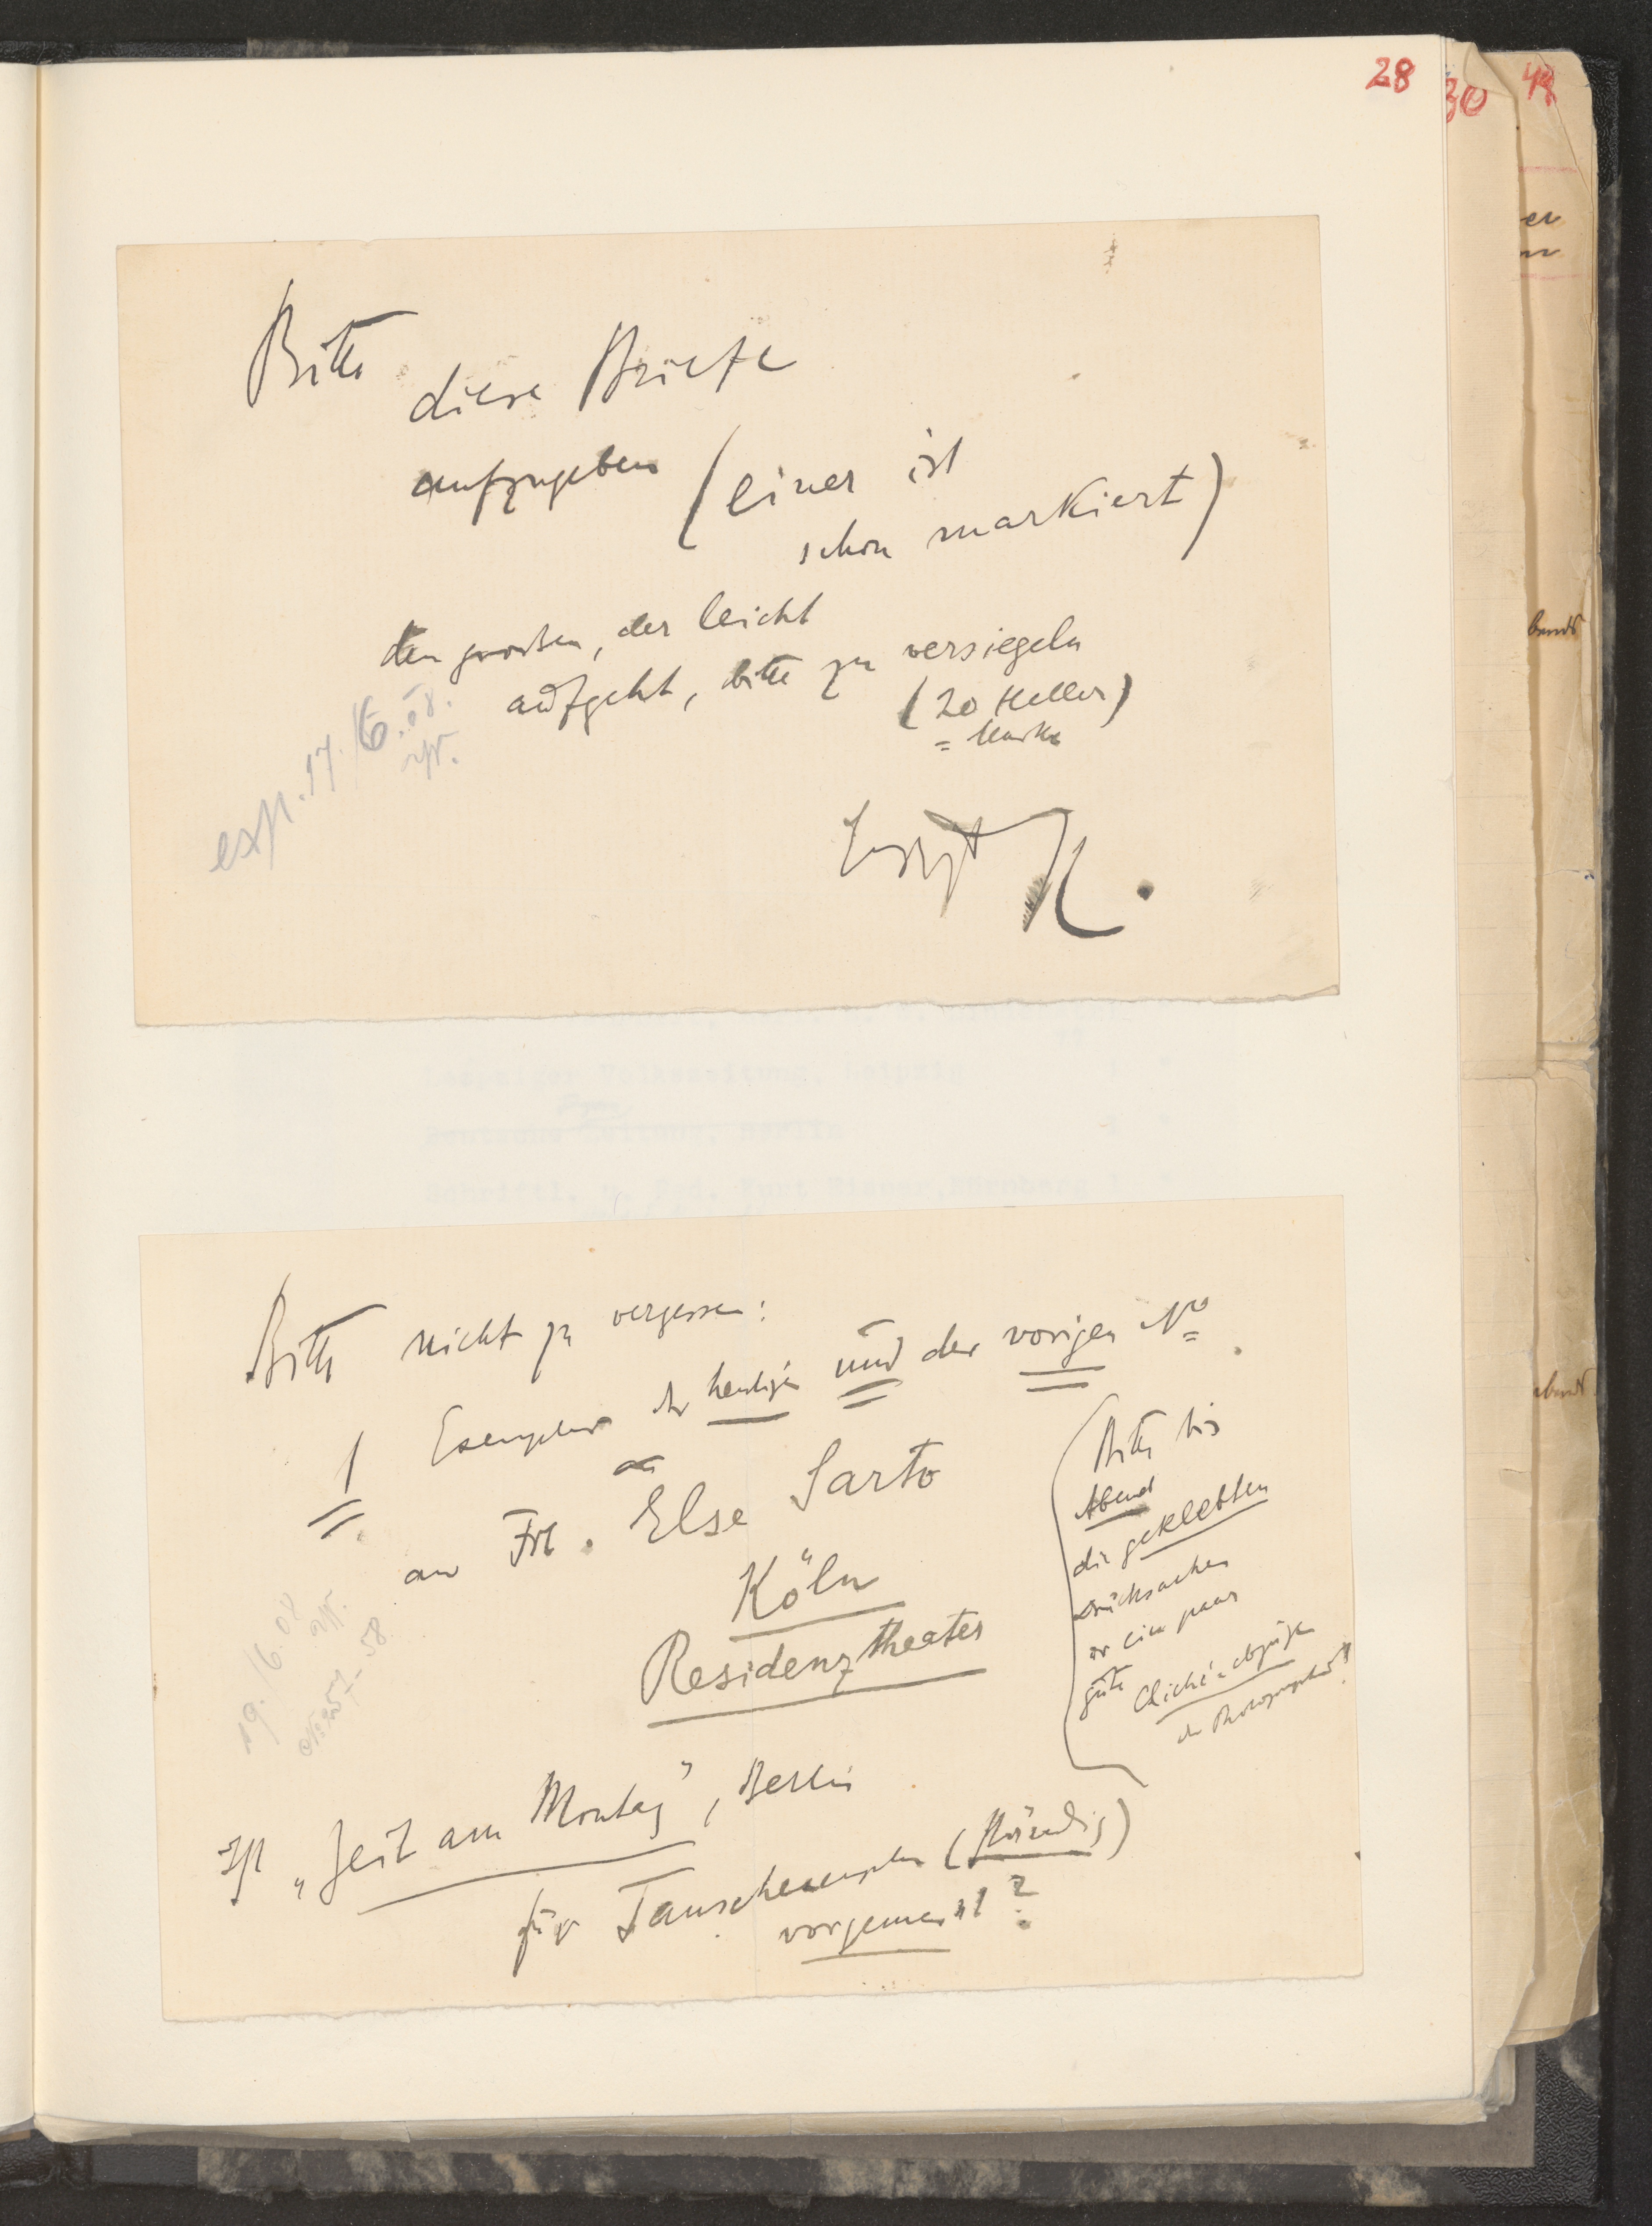 28
30
Bitte
diese Briefe
aufzugeben (einer ist
schon markiert)
den großen, der leicht
aufgeht, bitte zu versiegeln
(20 Heller)
= Marke
exp. 17./6.08.
K.
Bitte nicht zu vergessen:
1 Exemplar der heutigen und der vorigen No.
an Frl. Else Sarto
Köln
Residenztheater
(Bitte bis
Abend
die geklebten
Drucksachen
ein paar
gute
Cliché-abzüge
der Photographie!)
19./6.08
Ist „Zeit am Montag", Berlin
für Tauschexemplar (ständig)
vorgemerkt?